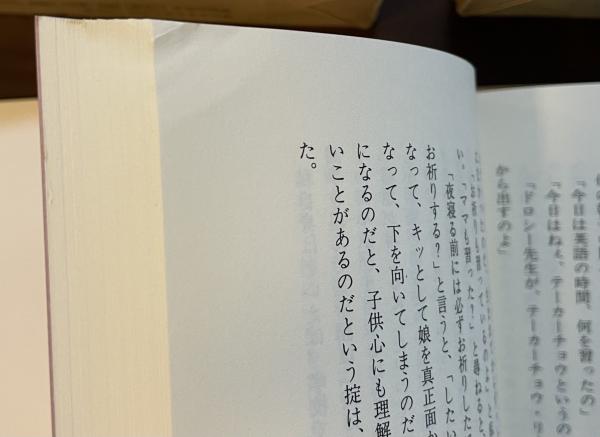 「今日は英語の時間、何を習ったの」
「今日はねぇ、テーカーチョウというの
「ドロシー先生が、テーカーチョウ・リ
から出すのよ」
「お祈りも習っているの
い。「ママも習った？」と尋ねると、
「夜寝る前には必ずお祈りした
お祈りする？」と言うと、「したい
なって、キッとして娘を真正面か
なって、下を向いてしまうのだ
になるのだと、子供心にも理解
いことがあるのだという掟は、
た。